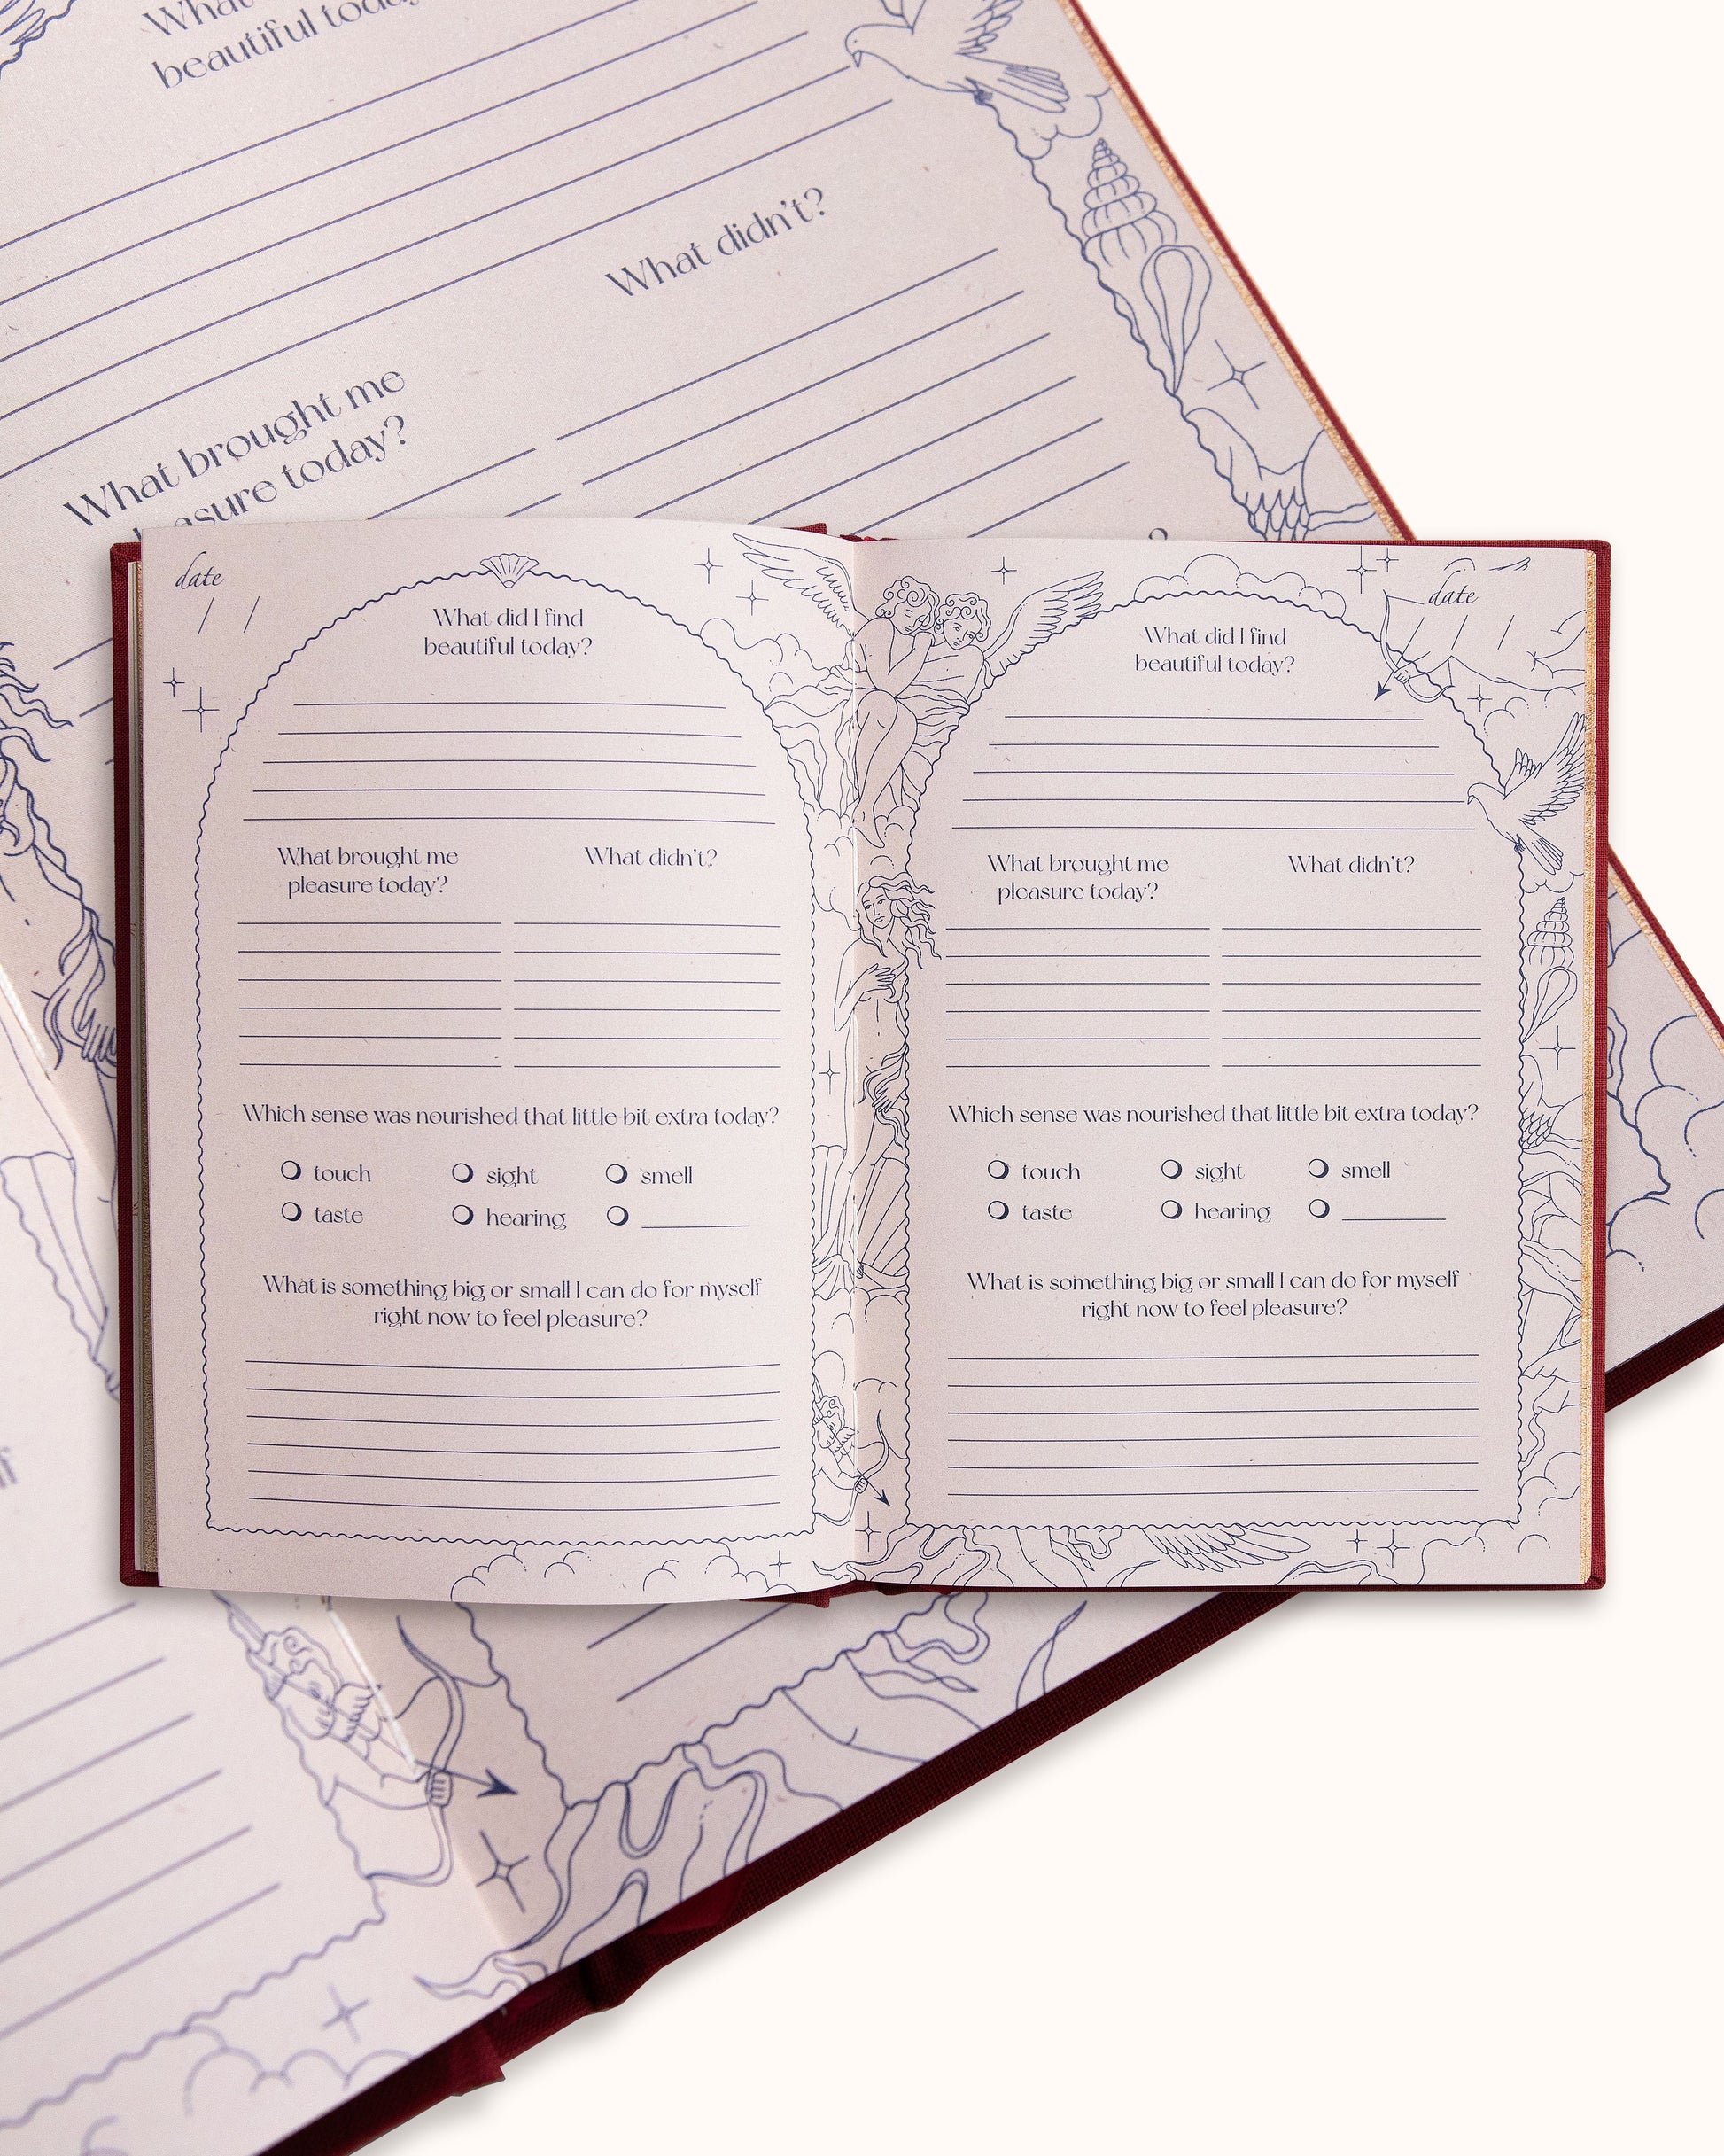 beautiful today
What didn't?
What brought me
today?
date
/ /
What did I find
beautiful today?
What brought me
pleasure today?
What didn't?
Which sense was nourished that little bit extra today?
touch
sight
smell
taste
hearing
What is something big or small I can do for myself
right now to feel pleasure?
date
/ / /
What did I find
beautiful today?
What brought me
pleasure today?
What didn't?
Which sense was nourished that little bit extra today?
touch
sight
smell
taste
hearing
What is something big or small I can do for myself
right now to feel pleasure?